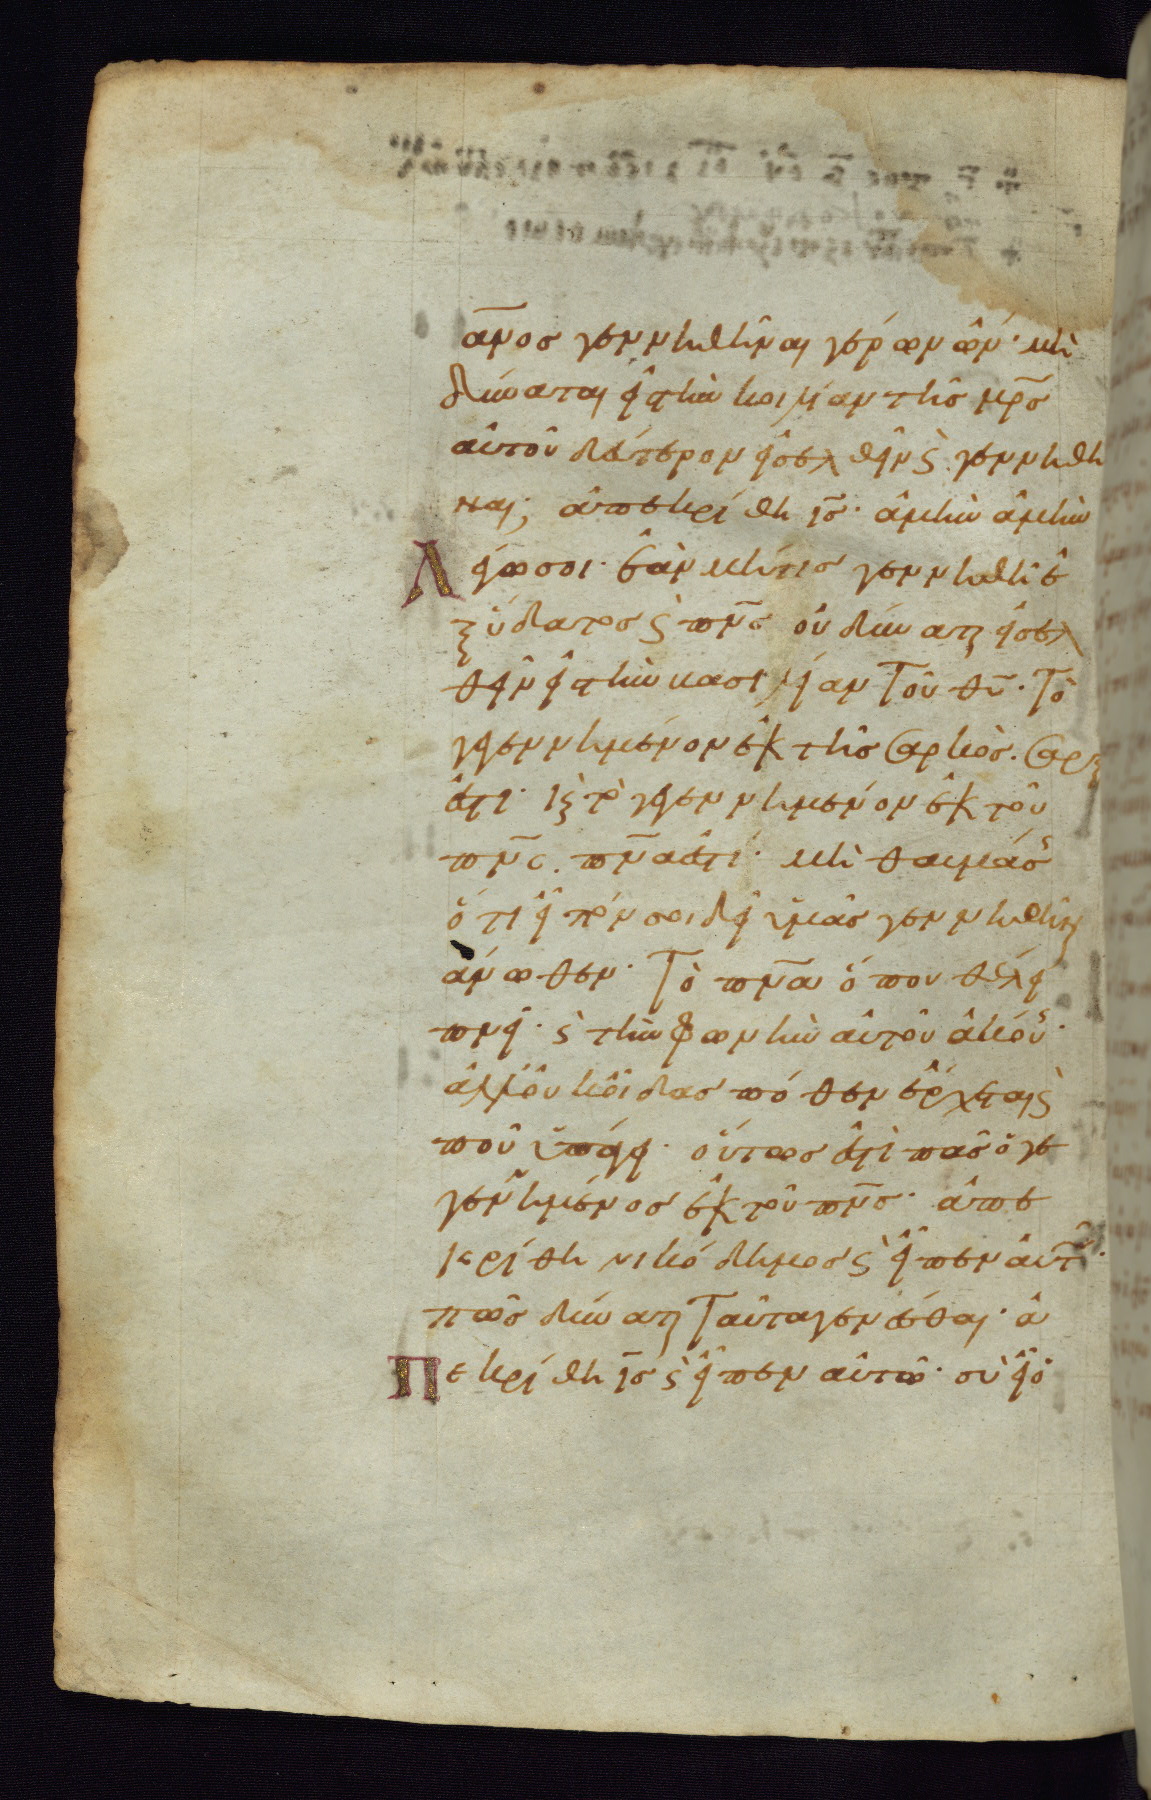 ᾱνοσ γεννηθῆναι γέρων ὤν· μὴ
δύναται εἰς τὴν κοιλίαν τῆς μ̅ρ̅ς
αὐτοῦ δεύτερον εἰσελθεῖν ϛ̀ γεννηθῆ
ναι; ἀπεκρίθη ι̅ς̅· ἀμὴν ἀμὴν
Λέγω σοι· ἐὰν μήτις γεννηθῆ ἐ
ξ ὕδατος ϛ̀ π̅ν̅ς̅ οὐ δύναται εἰσελ
θεῖν εἰς τὴν βασιλείαν τοῦ θ̅υ̅· Τὸ
γεγεννημένον ἐκ τῆς σαρκὸς· σαρξ
ἐστι· καὶ τὸ γεγεννημένον ἐκ τοῦ
π̅ν̅ς̅· π̅ν̅α̅ ἐστι· μὴ θαυμάσης
ὅτι εἶπόν σοι δεῖ ὑμᾶς γεννηθῆναι
ἄνωθεν· Τὸ π̅ν̅α̅ ὅπου θέλει
πνεῖ· ϛ̀ τὴν φωνὴν αὐτοῦ ἀκούεις·
ἀλλ' οὐκ οἶδας πόθεν ἔρχεται ϛ̀
ποῦ ὑπάγει· οὕτως ἐστὶ πᾶς ὁ γε
γεννημένος ἐκ τοῦ π̅ν̅ς̅· ἀπε
κρίθη νικόδημος ϛ̀ εἶπεν αὐτῶ·
πῶς δύναται ταῦτα γενέσθαι· ἀ
Πεκρίθη ι̅ς̅ ϛ̀ εἶπεν αὐτῶ· σὺ εἶ ὁ